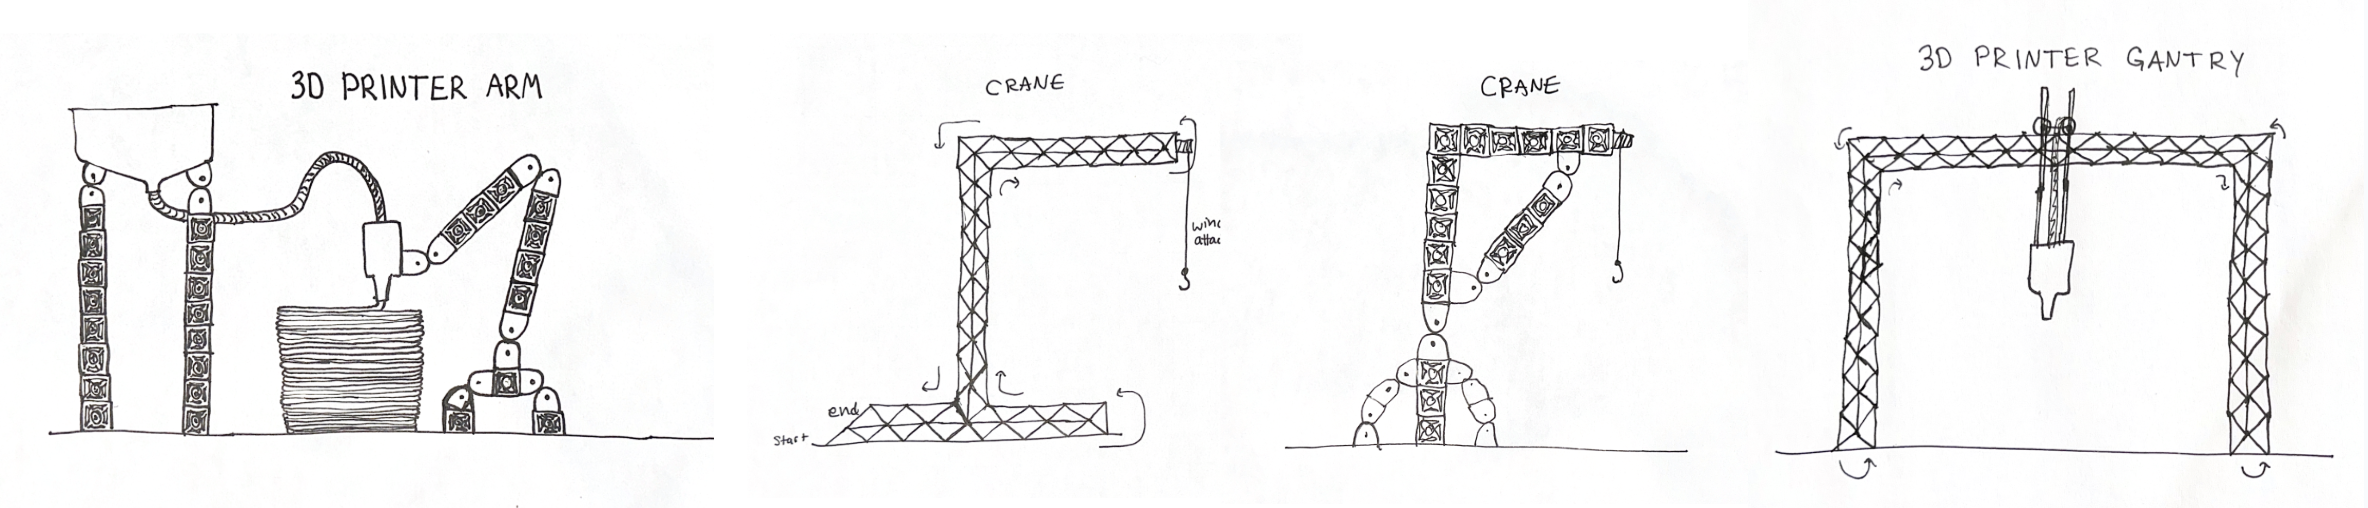 3D PRINTER ARM
CRANE
winc
attac
end
Start
CRANE
3D PRINTER GANTRY